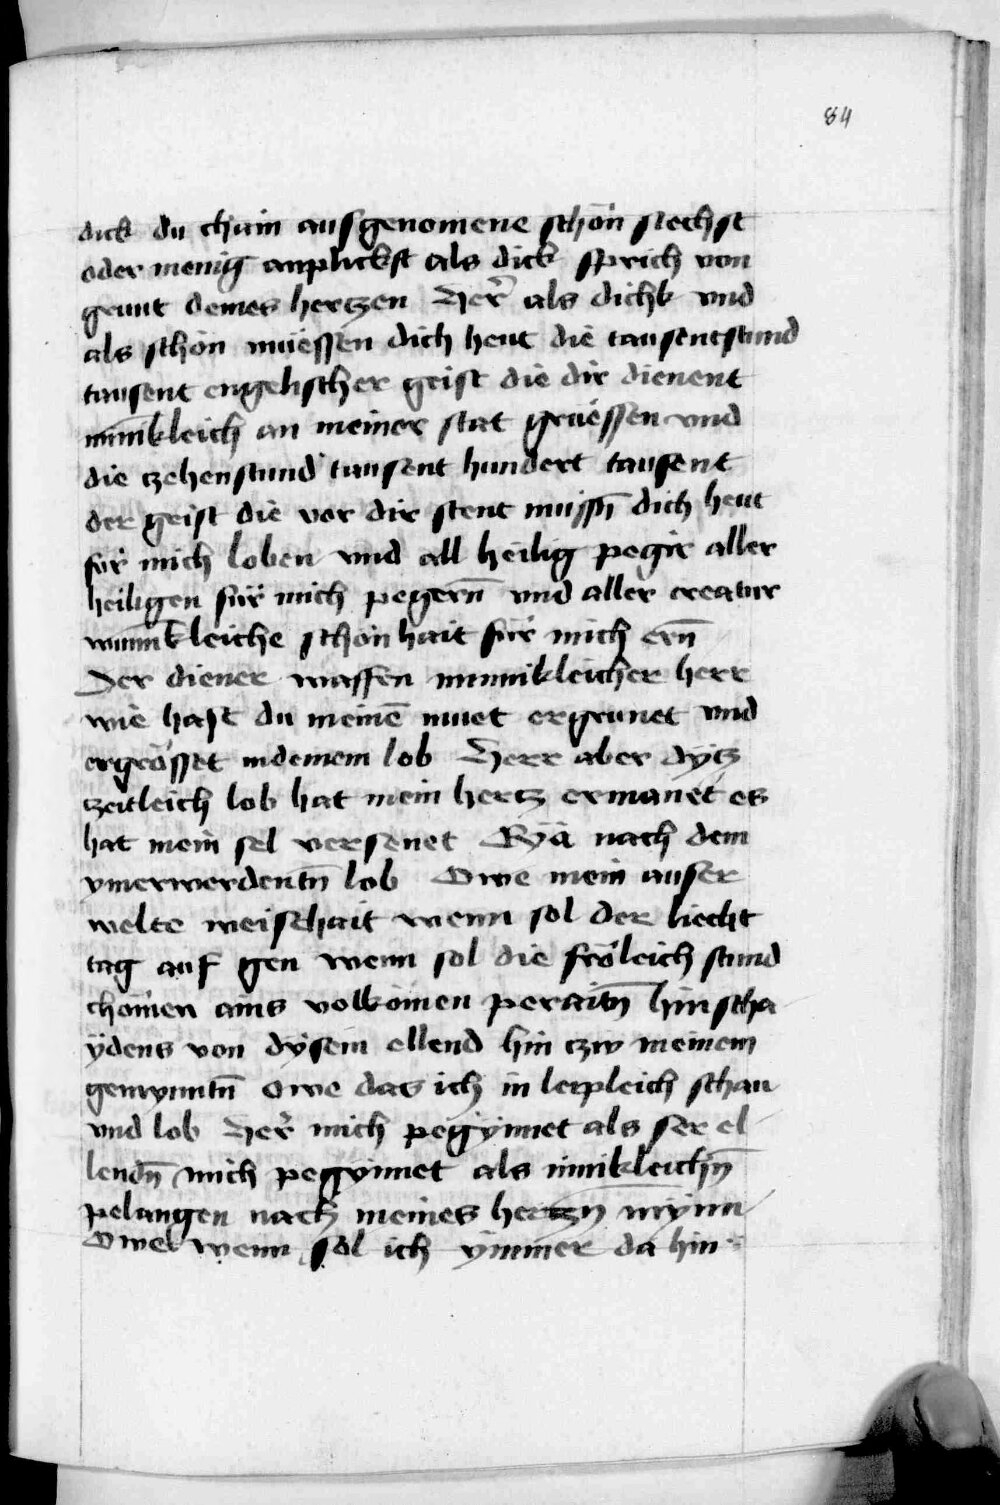 84
dick du chain ausgenomene schön siechst
oder menig anplickst als dick sprich von
grunt deines hertzen Her̄ als dichk vnd
als schön müessen dich heut die tausentstund
tausent engelischer geist die dir dienent
minikleich an meiner stat grüessen vnd
die tzehenstund tausent hundert tausent
der geist die vor dir stent müssn̄ dich heut
für mich loben vnd all heilig pegir aller
heiligen für mich pegern̄ vnd aller creatur
wunnikleiche schönhait für mich ern̄
Der diener waffen minnikleicher herr
wie hast du meinē muet ergrunet vnd
ergrösset in deinem lob Herr aber dytz
tzeitleich lob hat mein hertz ermanet es
hat mein sel versenet Ryä nach dem
ymerwerdentn̄ lob Owe mein auser
welte weishait wenn sol der liecht
tag auf gen wenn sol die fröleich stund
chömen ains volkömen peraitn̄ hinscha
ydens von dysem ellend hin tzw meinem
gemynntn̄ owe das ich in leipleich schau
vnd lob Her̄ mich pegynnet als ser el
lendn̄ mich pegynnet als innikleichn̄
pelangen nach meines hertzn̄ mynn
Owe wenn sol ich ymmer da hin